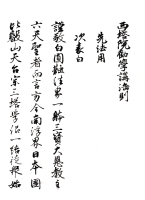 西塔院勧学講法則
先法用
次表白
謹敬白圓融法界一躰三寳大恩教主
六天聖者而言方今南浮界日本國
比叡山天台宗三塔學侶一結徒衆始